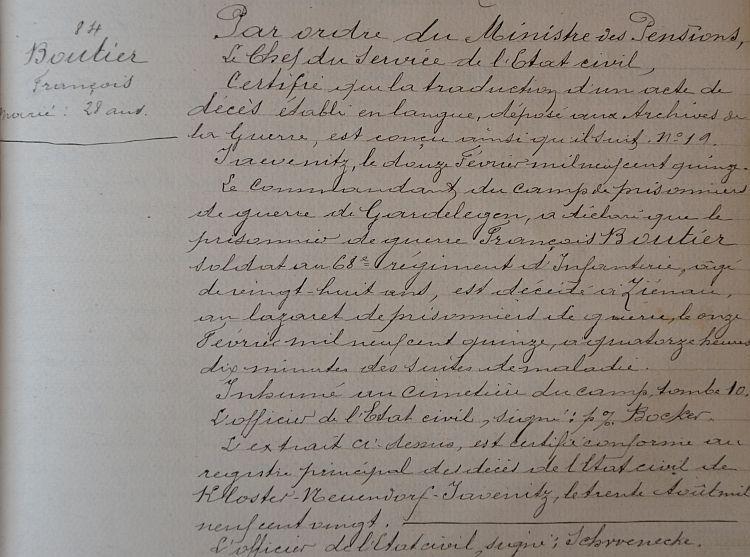 84
Boutier
François
marié: 28 ans.
Par ordre du Ministre des Pensions,
Le Chef du Service de l'Etat civil,
Certifie que la traduction d'un acte de
décès établi en langue, déposé aux Archives de
la Guerre, est conçu ainsi qu'il suit. N° 19.
Jaevenitz, le douze Février mil neuf cent quinze.
Le commandant du camp de prisonniers
de guerre de Gardelegen, a déclaré que le
prisonnier de guerre François Boutier
soldat au 68e régiment d'Infanterie, âgé
de vingt-huit ans, est décédé à Ziénau,
au lazaret de prisonniers de guerre, le onze
Février mil neuf cent quinze, à quatorze heures
dix minutes des suites de maladie.
Inhumé au cimetière du camp, tombe 10.
L'officier de l'Etat civil, signé: p% Bocker.
L'extrait ci-dessus, est certifié conforme au
registre principal des décès de l'Etat civil de
Kloster-Neuendorf-Javenitz, le trente Août mil
neuf cent vingt.
L'officier de l'Etat civil, signé: